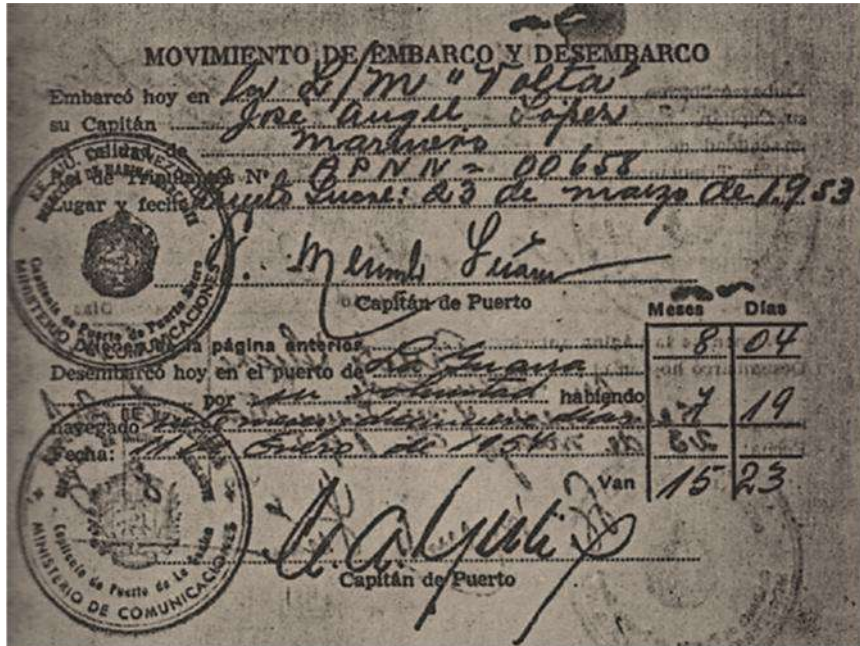 MOVIMIENTO DE EMBARCO Y DESEMBARCO
Embarcó hoy en la L/M "Volta"
su Capitán José Angel López
calidad de marinero
Nº APNN - 00658
Lugar y fecha Puerto Sucre: 23 de marzo de 1.953
Capitán de Puerto
Meses Días
la página anterior 8 04
Desembarcó hoy en el puerto de La Guaira
por su voluntad habiendo
navegado 7 19
Fecha: 11 de Enero de 1954
Van 15 23
Capitán de Puerto
Capitanía de Puerto de Puerto Sucre
MINISTERIO DE COMUNICACIONES
Capitanía de Puerto de La Guaira
MINISTERIO DE COMUNICACIONES